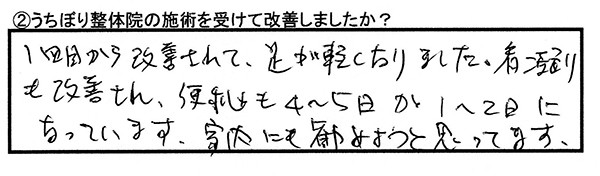 ②うちぼり整体院の施術を受けて改善しましたか？
1回目から改善されて、足が軽くなりました。肩凝り
も改善され、便秘も4～5日が1～2日に
なっています。家内にも勧めようと思ってます。